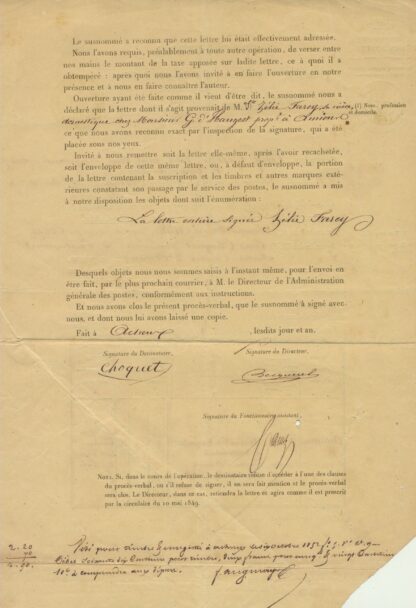 Le susnommé a reconnu que cette lettre lui était effectivement adressée.
Nous l'avons requis, préalablement à toute autre opération, de verser entre
nos mains le montant de la taxe apposée sur ladite lettre, ce à quoi il a
obtempéré : après quoi nous l'avons invité à en faire l'ouverture en notre
présence et à nous en faire connaître l'auteur.
Ouverture ayant été faite comme il vient d'être dit, le susnommé nous a
déclaré que la lettre dont il s'agit provenait de M. Zélie Farcy
domestique chez Monsieur G. d'Hangest à
(1) Nom, profession
et domicile.
ce que nous avons reconnu exact par l'inspection de la signature, qui a été
placée sous nos yeux.
Invité à nous remettre soit la lettre elle-même, après l'avoir recachetée,
soit l'enveloppe de cette même lettre, ou, à défaut d'enveloppe, la portion
de la lettre contenant la suscription et les timbres et autres marques exté-
rieures constatant son passage par le service des postes, le susnommé a mis
à notre disposition les objets dont suit l'énumération :
La lettre entière signée Zélie Farcy
Desquels objets nous nous sommes saisis à l'instant même, pour l'envoi en
être fait, par le plus prochain courrier, à M. le Directeur de l'Administration
générale des postes, conformément aux instructions.
Et nous avons clos le présent procès-verbal, que le susnommé a signé avec
nous, et dont nous lui avons laissé une copie.
Fait à lesdits jour et an.
Signature du Destinataire,
Signature du Directeur,
Choquet
Signature du Fonctionnaire assistant,
NOTA. Si, dans le cours de l'opération, le destinataire refuse d'accéder à l'une des clauses
du procès-verbal, ou s'il refuse de signer, il en sera fait mention et le procès-verbal
sera clos. Le Directeur, dans ce cas, retiendra la lettre et agira comme il est prescrit
par la circulaire du 10 mai 1849.
2.20
Visé pour timbre & enregistré à octobre 1852
70
2.90
10e